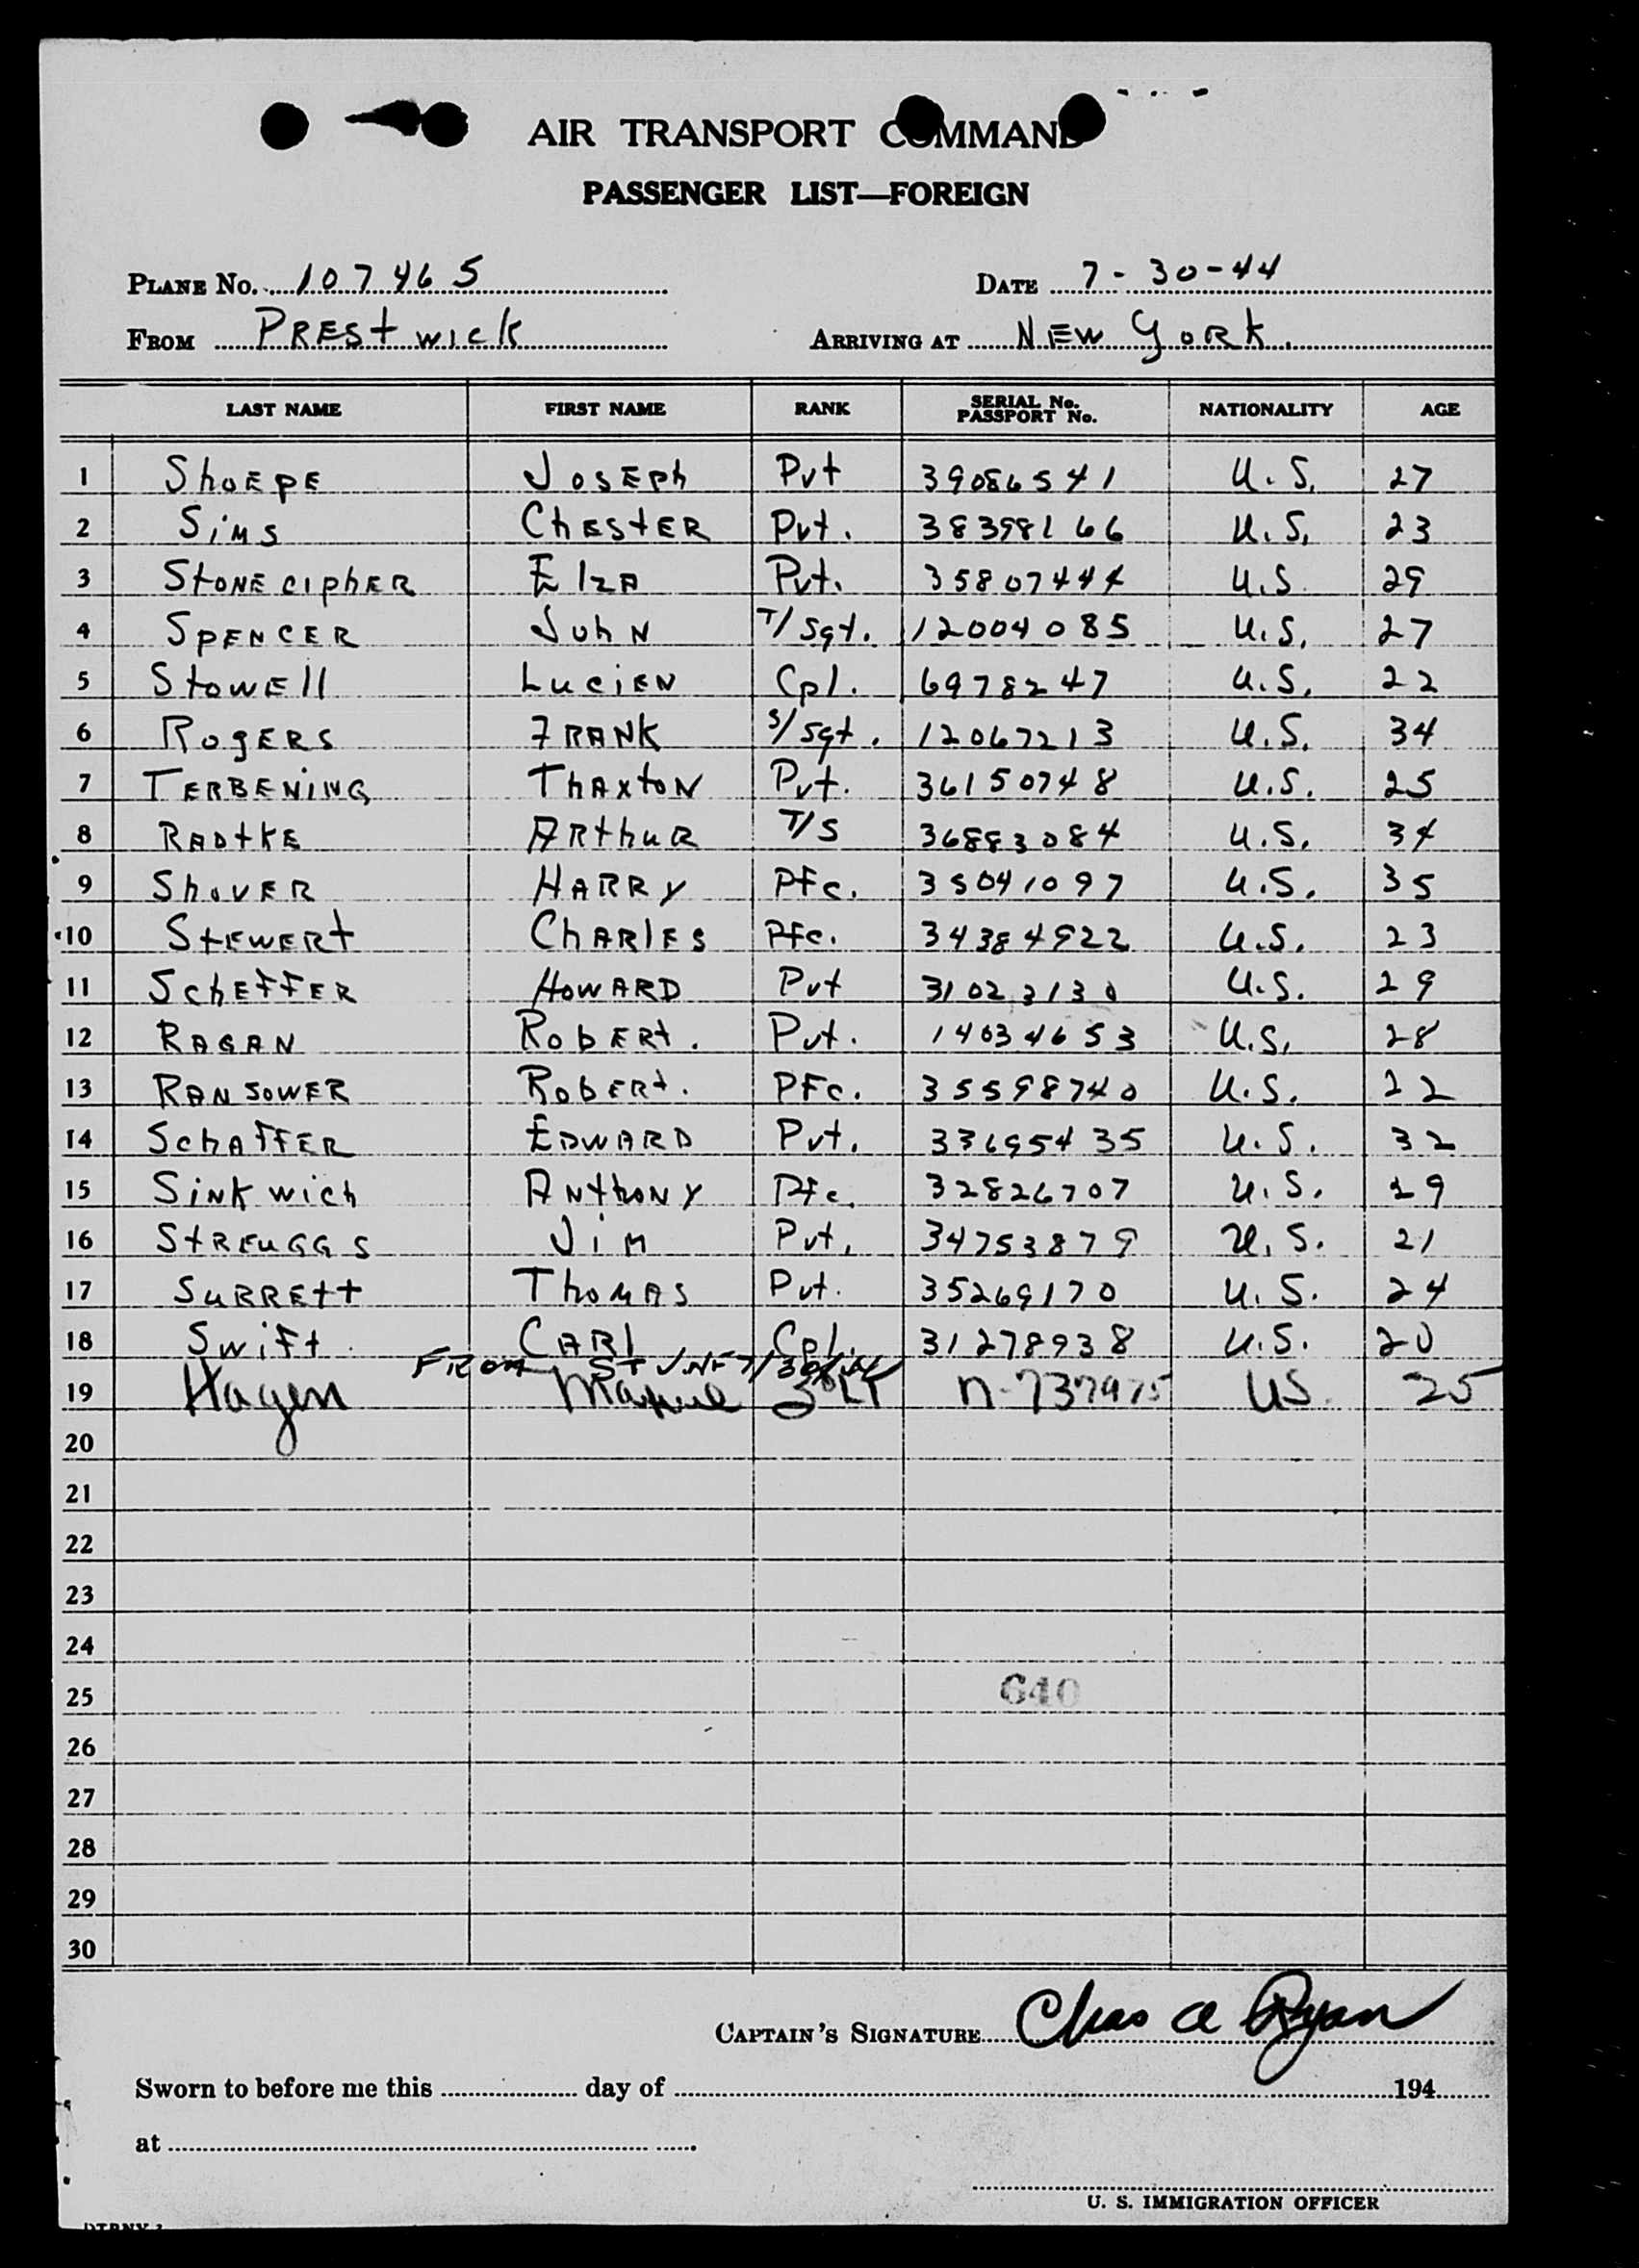 AIR TRANSPORT COMMAND
PASSENGER LIST—FOREIGN
PLANE NO. 107465 DATE 7-30-44
FROM PRESTWICK ARRIVING AT NEW YORK.
LAST NAME FIRST NAME RANK SERIAL No. PASSPORT No. NATIONALITY AGE
1 SHOEPE JOSEPH Pvt 39086541 U.S. 27
2 SIMS CHESTER Pvt. 38398166 U.S. 23
3 STONECIPHER ELZA Pvt. 35807444 U.S 29
4 SPENCER JOHN T/Sgt. 12004085 U.S. 27
5 STOWELL LUCIEN Cpl. 6978247 U.S. 22
6 ROGERS FRANK S/Sgt. 12067213 U.S. 34
7 TERBENING THAXTON Pvt. 36150748 U.S. 25
8 RADTKE ARTHUR T/5 36883084 U.S. 34
9 SHOVER HARRY Pfc. 35041097 U.S. 35
10 STEWERT CHARLES Pfc. 34384922 U.S. 23
11 SCHEFFER HOWARD Pvt 31023130 U.S. 29
12 RAGAN ROBERT. Pvt. 14034653 U.S. 28
13 RANSOWER ROBERT. PFc. 35598740 U.S. 22
14 SCHAFFER EDWARD Pvt. 33695435 U.S. 32
15 SINKWICH ANTHONY Pfc. 32826707 U.S. 19
16 STREUGGS JIM Pvt. 34753879 U.S. 21
17 SURRETT THOMAS Pvt. 35269170 U.S. 24
18 SWIFT. CARL Cpl. 31278938 U.S. 20
FROM ST JNF 7/30/44
19 Hagen LT N-737975 US. 25
20
21
22
23
24
25 640
26
27
28
29
30
CAPTAIN'S SIGNATURE Chas A Ryan
Sworn to before me this day of 194
at .
U. S. IMMIGRATION OFFICER